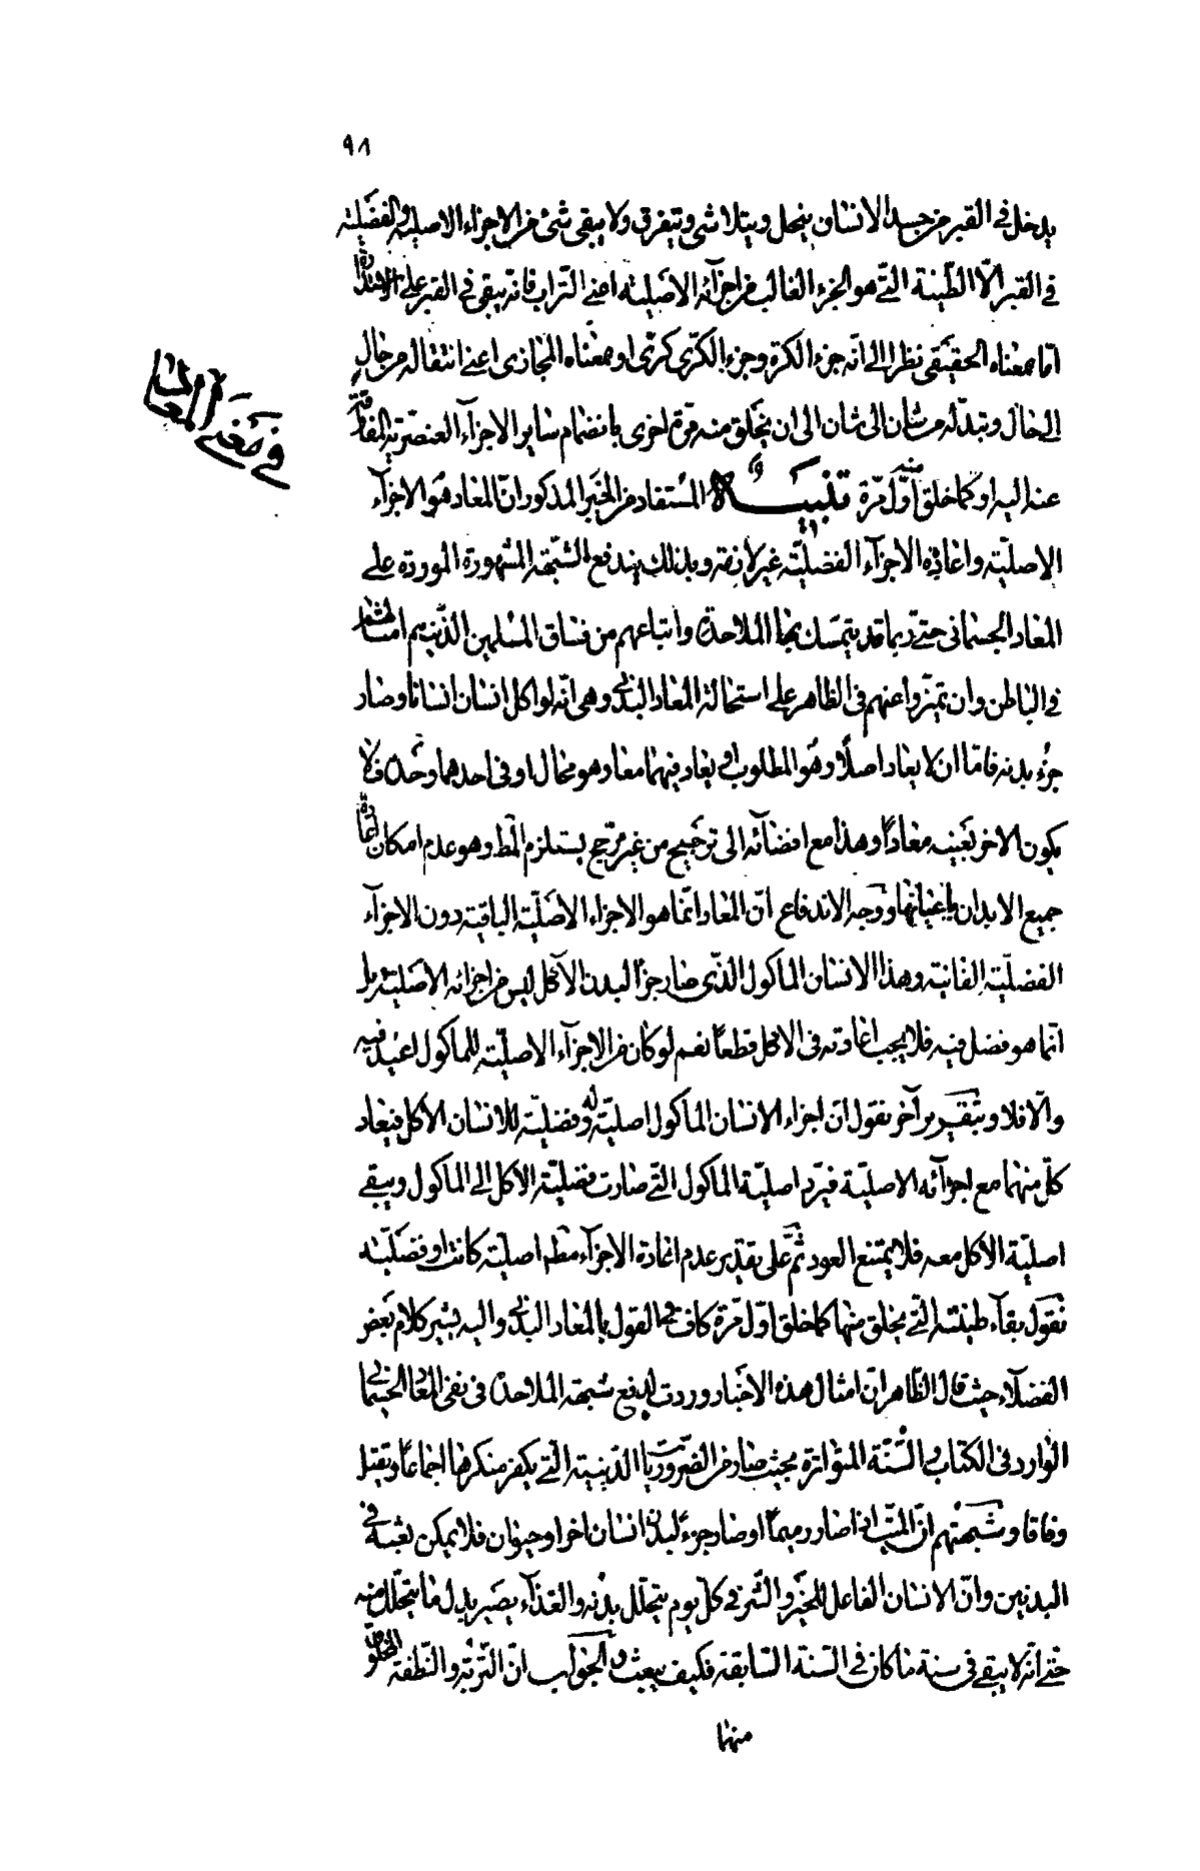 ٩٨
يدخل في القبر من جسد الانسان ينحل ويتلاشى ويتفرق ولا يبقى شئ من الاجزاء الاصلية والفضلية
في القبر الّا الطّينة الّتي هو الجزء الغالب من اجزائه الاصلية اعني التراب فانّه يبقى في القبر على الاستدارة
امّا بمعناه الحقيقي نظرا الى انّه جزء الكرة وجزء الكرى كرى او بمعناه المجازى اعني انتقاله من حال
الى حال وتبدّله من شان الى شان الى ان يخلق منه مرّة اخرى بانضمام ساير الاجزآء العنصرية المفارقة
في معنى المعاد
عنه اليه او كما خلق منه اوّل مرّة تنبيه المستفاد من الخبر المذكور انّ المعاد هو الاجزآء
الاصليّة واعادة الاجزآء الفضليّة غير لازمة وبذلك يندفع الشبهة المشهورة الموردة على
المعاد الجسمانى حتى ربما قد يتمسّك بها الملاحدة واتباعهم من فساق المسلمين الذين هم امثالهم
في الباطن وان تميّزوا عنهم في الظاهر على استحالة المعاد البدنى وهى انّه لو اكل انسان انسانا وصار
جزء بدنه فامّا ان لا يعاد اصلا وهو المطلوب او يعاد فيهما معا وهو محال او في احدهما وحده فلا
يكون الاخر بعينه معادًا وهذا مع افضائه الى ترجيح من غير مرجّح يستلزم المط وهو عدم امكان اعادة
جميع الابدان باعيانها ووجه الاندفاع انّ المعاد انّما هو الاجزاء الاصليّة الباقية دون الاجزآء
الفضليّة الفانية وهذا الانسان الماكول الذّى صار جزء البدن الآكل ليس من اجزائه الاصلية بل
انّما هو فضل فيه فلا يجب اعادته في الاكل قطعا نعم لو كان من الاجزآء الاصليّة للماكول اعيد فيه
والّا فلا وبتقرير آخر نقول انّ اجزاء الانسان الماكول اصليّة له وفضليّة للانسان الاكل فيعاد
كلّ منهما مع اجزآئه الاصليّة فيردّ اصليّة الماكول التّي صارت فضليّة الاكل الى الماكول ويبقى
اصليّة الاكل معه فلا يمتنع العود ثمّ على تقدير عدم اعادة الاجزآء مطلقا اصليّة كانت او فضليّة
نقول بقآء طينته الّتي يخلق منها كما خلق اوّل مرّة كاف في القول بالمعاد البدنى واليه يشير كلام بعض
الفضلآء حيث قال الظاهر انّ امثال هذه الاخبار وردت لدفع شبهة الملاحدة في نفى المعاد الجسمانى
الوارد فى الكتاب والسّنّة المتواترة بحيث صار من الضّروريّات الدّينية الّتي يكفر منكرها اجماعا ويقتل
وفاقا وشبهتهم انّ الميّت اذا صار رميمًا او صار جزء لبدن انسان اخر او حيوان فلا يمكن بعثه في
البدنين وانّ الانسان الفاعل للخير والشّر في كلّ يوم يتحلّل بدنه والغذآء يصير بدل ما يتحلّل منه
حتّى انّه لا يبقى في سنة ما كان في السّنة السّابقة فكيف يبعث والجواب انّ التّربة والنّطفة المخلوق
منهما